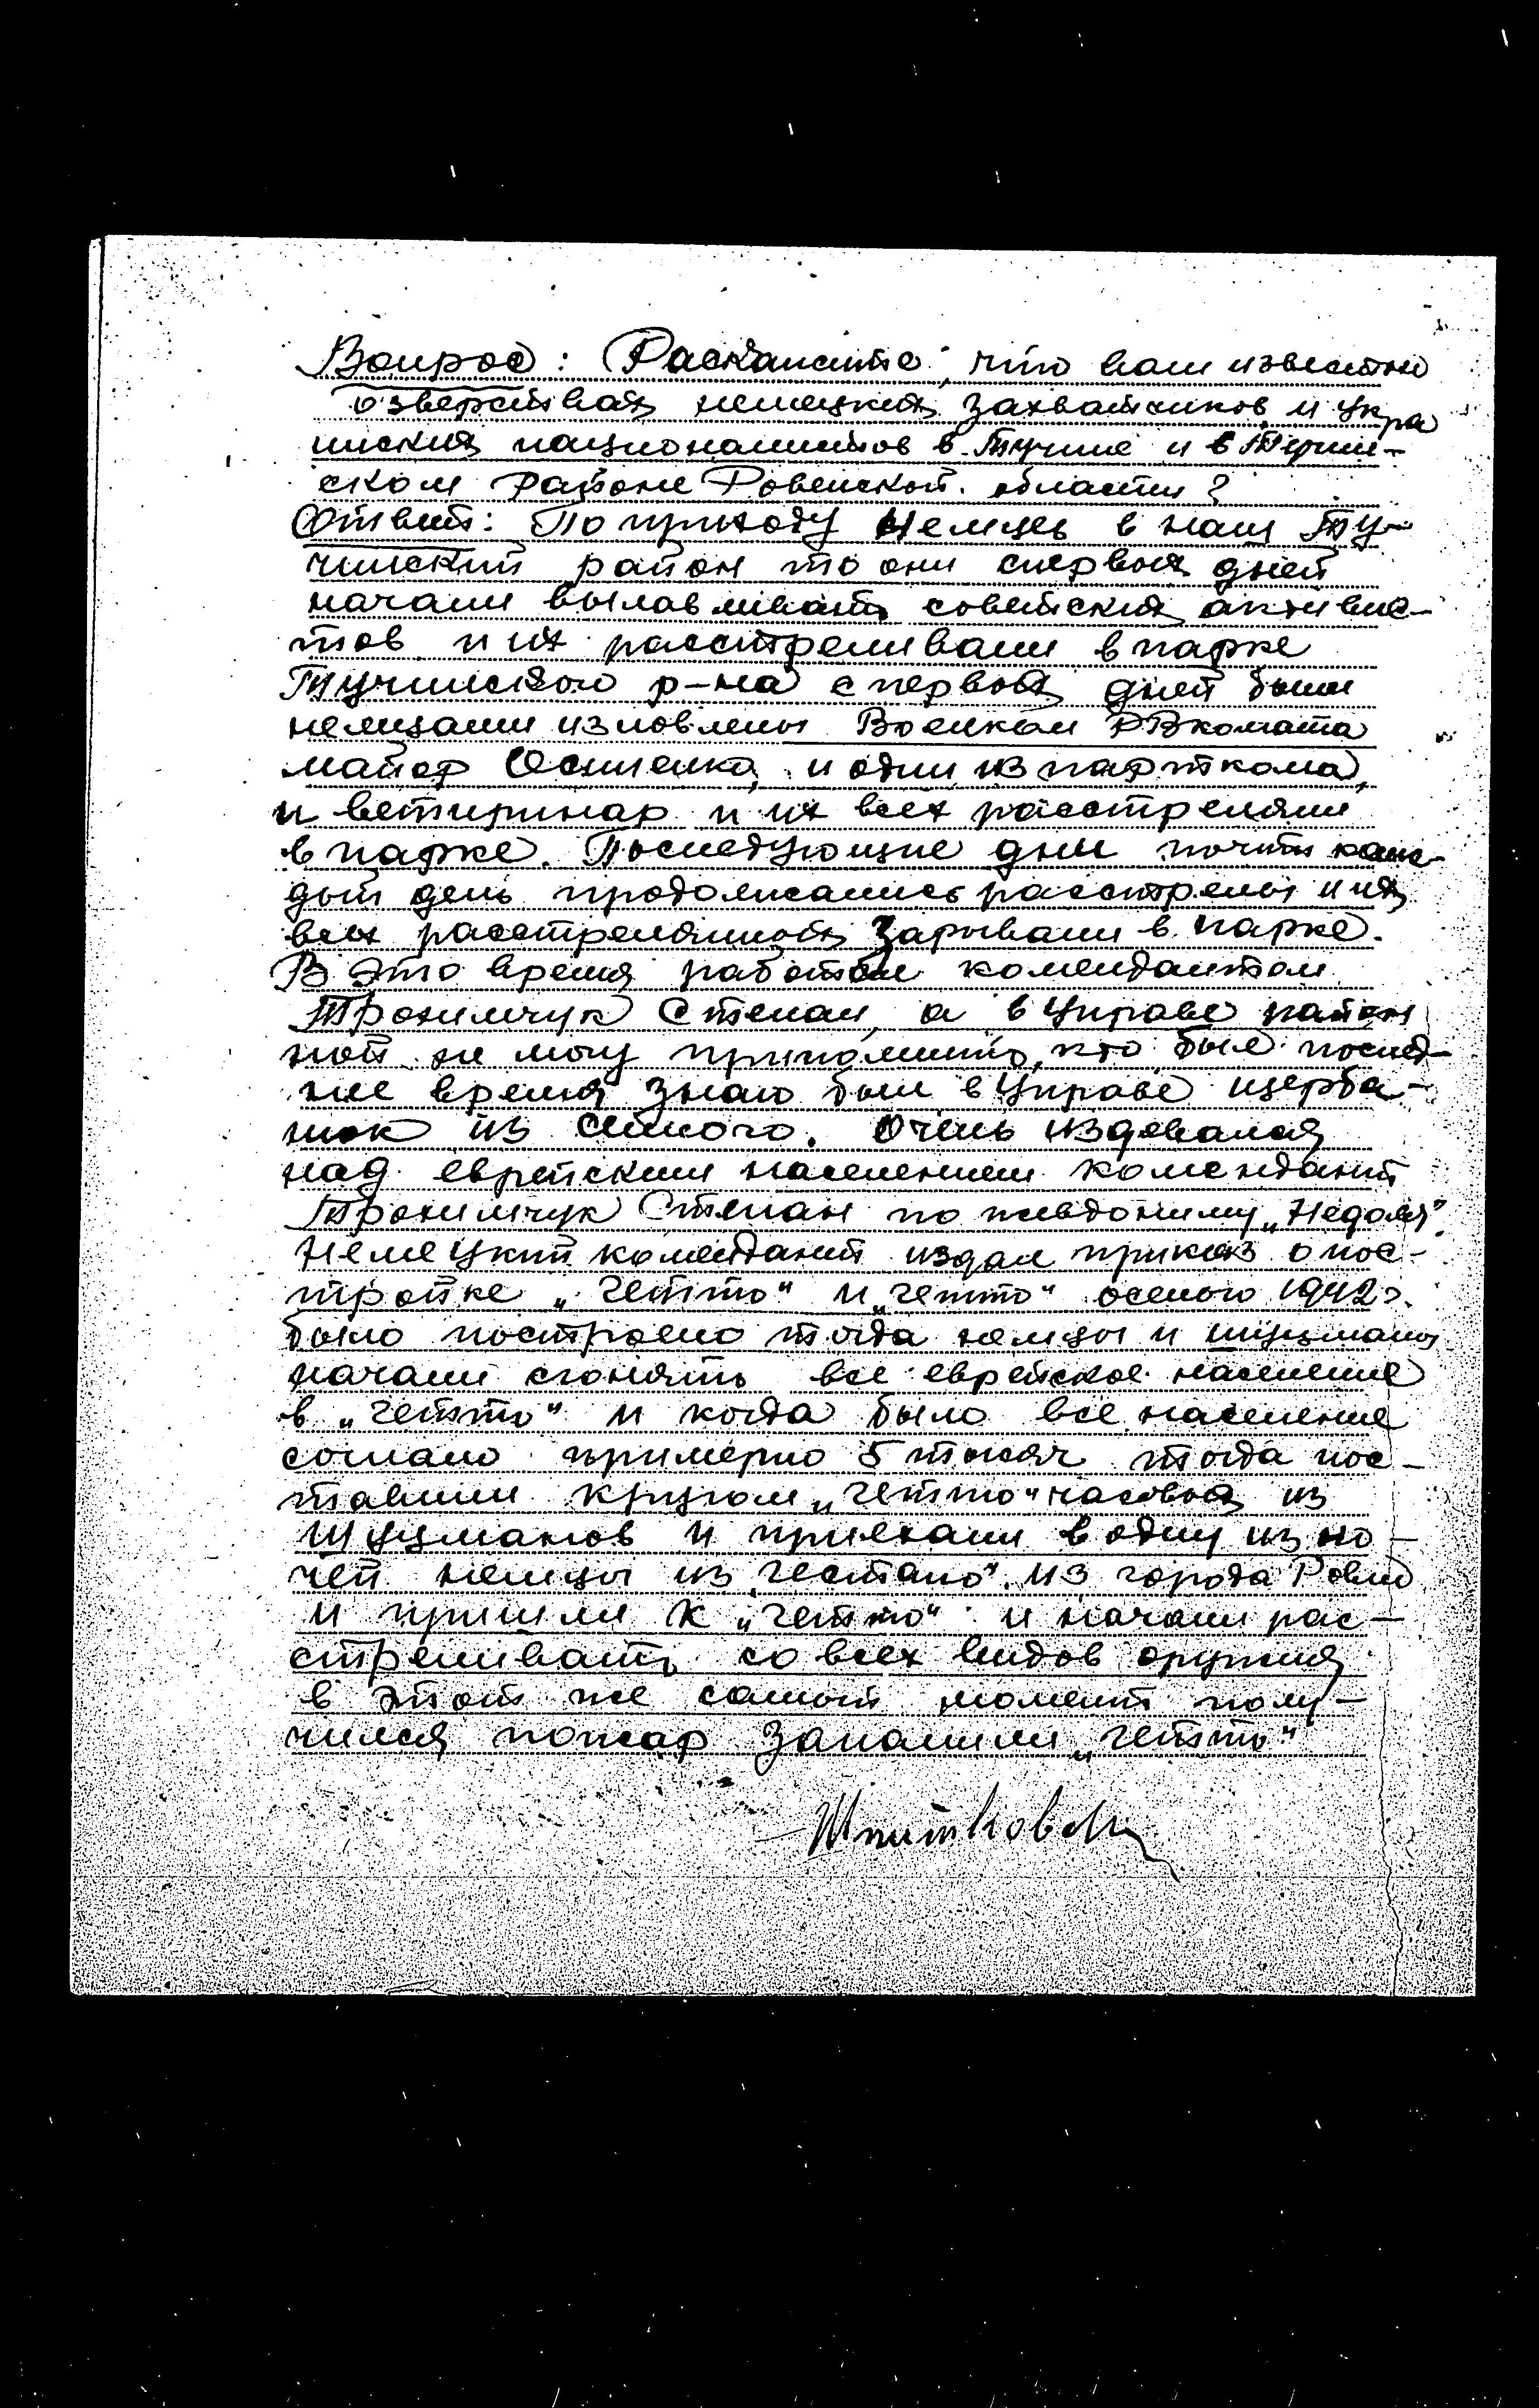 Вопрос: Раскажите, что вам известно
озверствах немецких захватчиков и укра
инских националистов в Тучине и в Тучин-
ском Районе Ровенской области?
Ответ: По приходу немцев в наш Ту-
чинский район то они спервых дней
начали вылавливать советских активис-
тов и их расстреливали в парке
Тучинского р-на с первых дней были
немцами изловлены Военком РВкомата
майор Осипенко, и один из парткома,
и ветиринар и их всех расстреляли
в парке. Последующие дни почти каж-
дый день продолжались расстрелы и их
всех расстрелянных зарывали в парке.
В это время работал комендантом
Трохимчук Степан, а в Управе район
ной не могу припомнить, кто был послед-
нее время знаю был в Управе щерба-
нюк из . Очень издевался
над еврейским населением комендант
Трохимчук Степан по псевдониму „Недоля".
Немецкий комендант издал приказ о пос-
тройке „гетто" и „гетто" осеною 1942 г.
было построено тогда немцы и шуцманы
начали сгонять все еврейское население
в „гетто" и когда было все население
согнано примерно 5 тысяч тогда пос-
тавили кругом „гетто" часовых из
шуцманов и приехали в одну из но-
чей немцы из „гестапо" из города Ровно
и пришли к „гетто" и начали рас-
стреливать со всех видов оружия
в этот же самый момент полу-
чился пожар запалили „гетто"